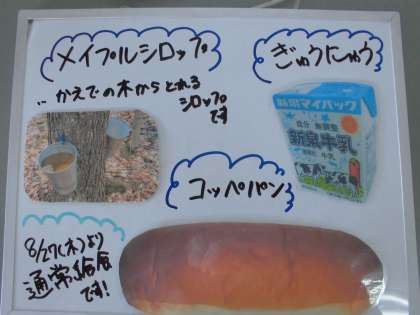 メイプルシロップ
かえでの木からとれる
シロップ
です
ぎゅうにゅう
コッペパン
8/27(木)より
通常給食
です!
成分無調整
牛乳